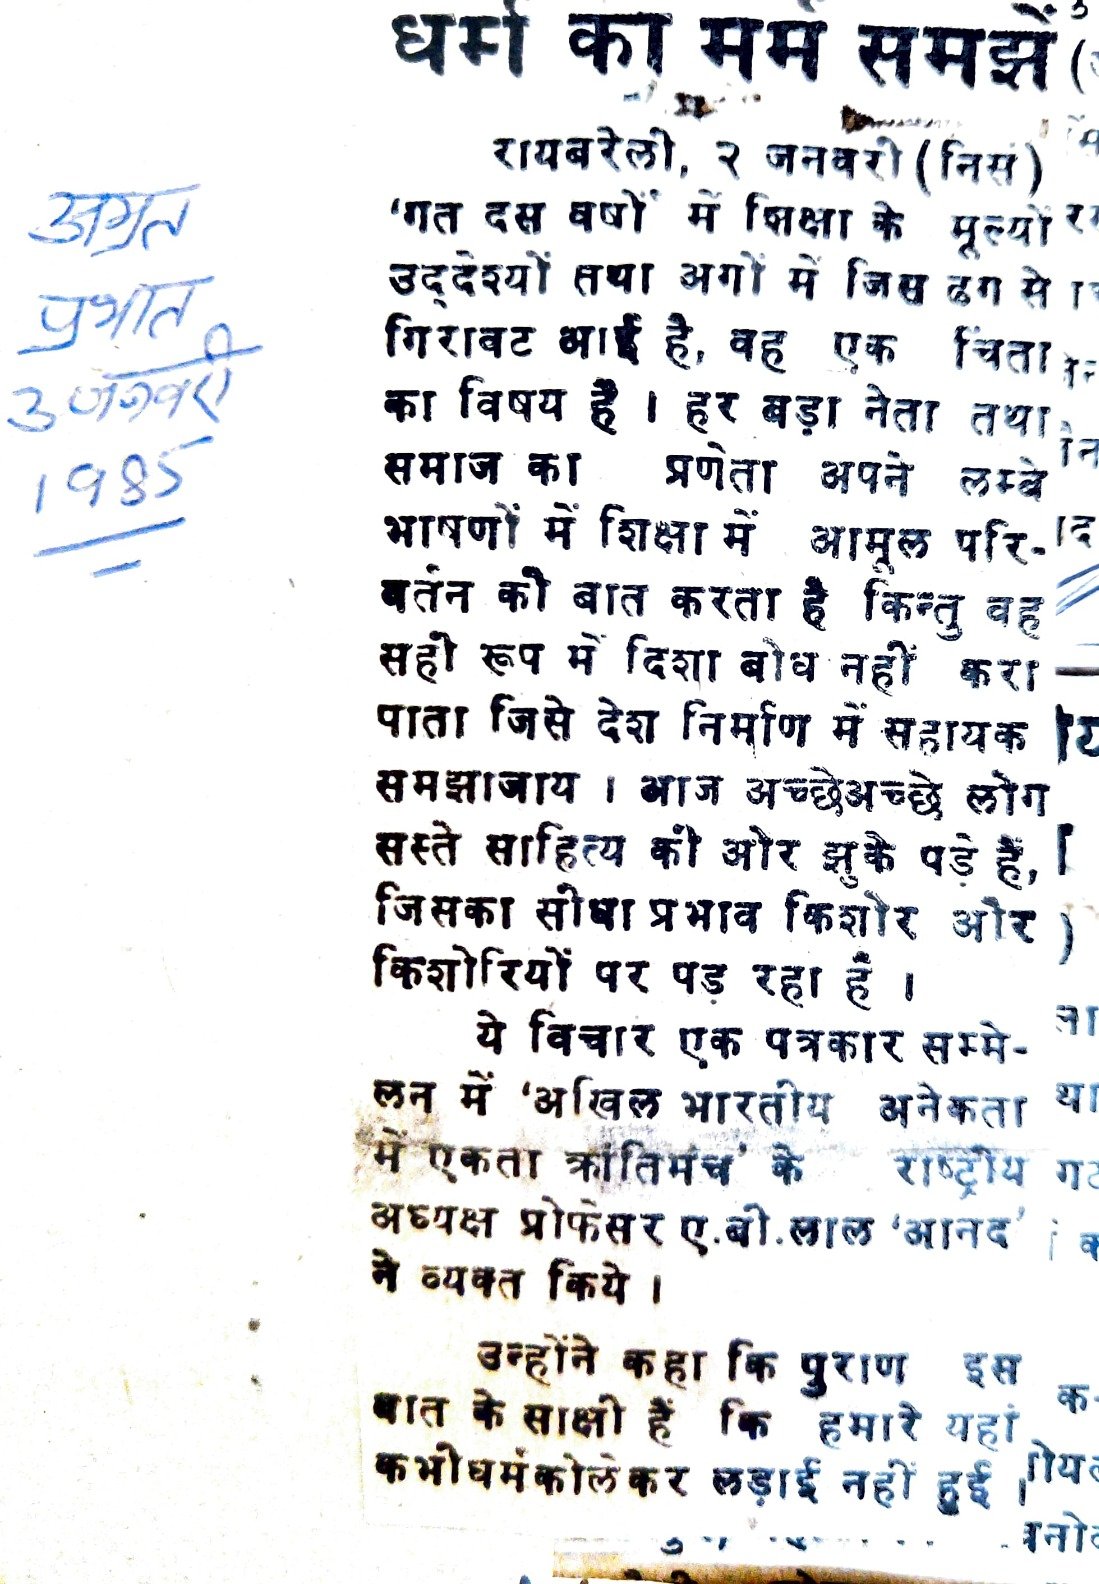 धर्म का मर्म समझें
रायबरेली, २ जनवरी (निसं)
‘गत दस वर्षों में शिक्षा के मूल्यों
उद्देश्यों तथा अगों में जिस ढग से
गिरावट आई है, वह एक चिंता
का विषय है । हर बड़ा नेता तथा
समाज का प्रणेता अपने लम्बे
भाषणों में शिक्षा में आमूल परि-
वर्तन की बात करता है किन्तु वह
सही रूप में दिशा बोध नहीं करा
पाता जिसे देश निर्माण में सहायक
समझाजाय । आज अच्छेअच्छे लोग
सस्ते साहित्य की ओर झुके पड़े हैं,
जिसका सीधा प्रभाव किशोर और
किशोरियों पर पड़ रहा है ।
ये विचार एक पत्रकार सम्मे-
लन में ‘अखिल भारतीय अनेकता
में एकता क्रांतिमंच’ के राष्ट्रीय
अध्यक्ष प्रोफेसर ए.बी.लाल ‘आनद’
ने व्यक्त किये ।
उन्होंने कहा कि पुराण इस
बात के साक्षी हैं कि हमारे यहां
कभीधर्मकोलेकर लड़ाई नहीं हुई ।
अमृत
प्रभात
3 जनवरी
1985